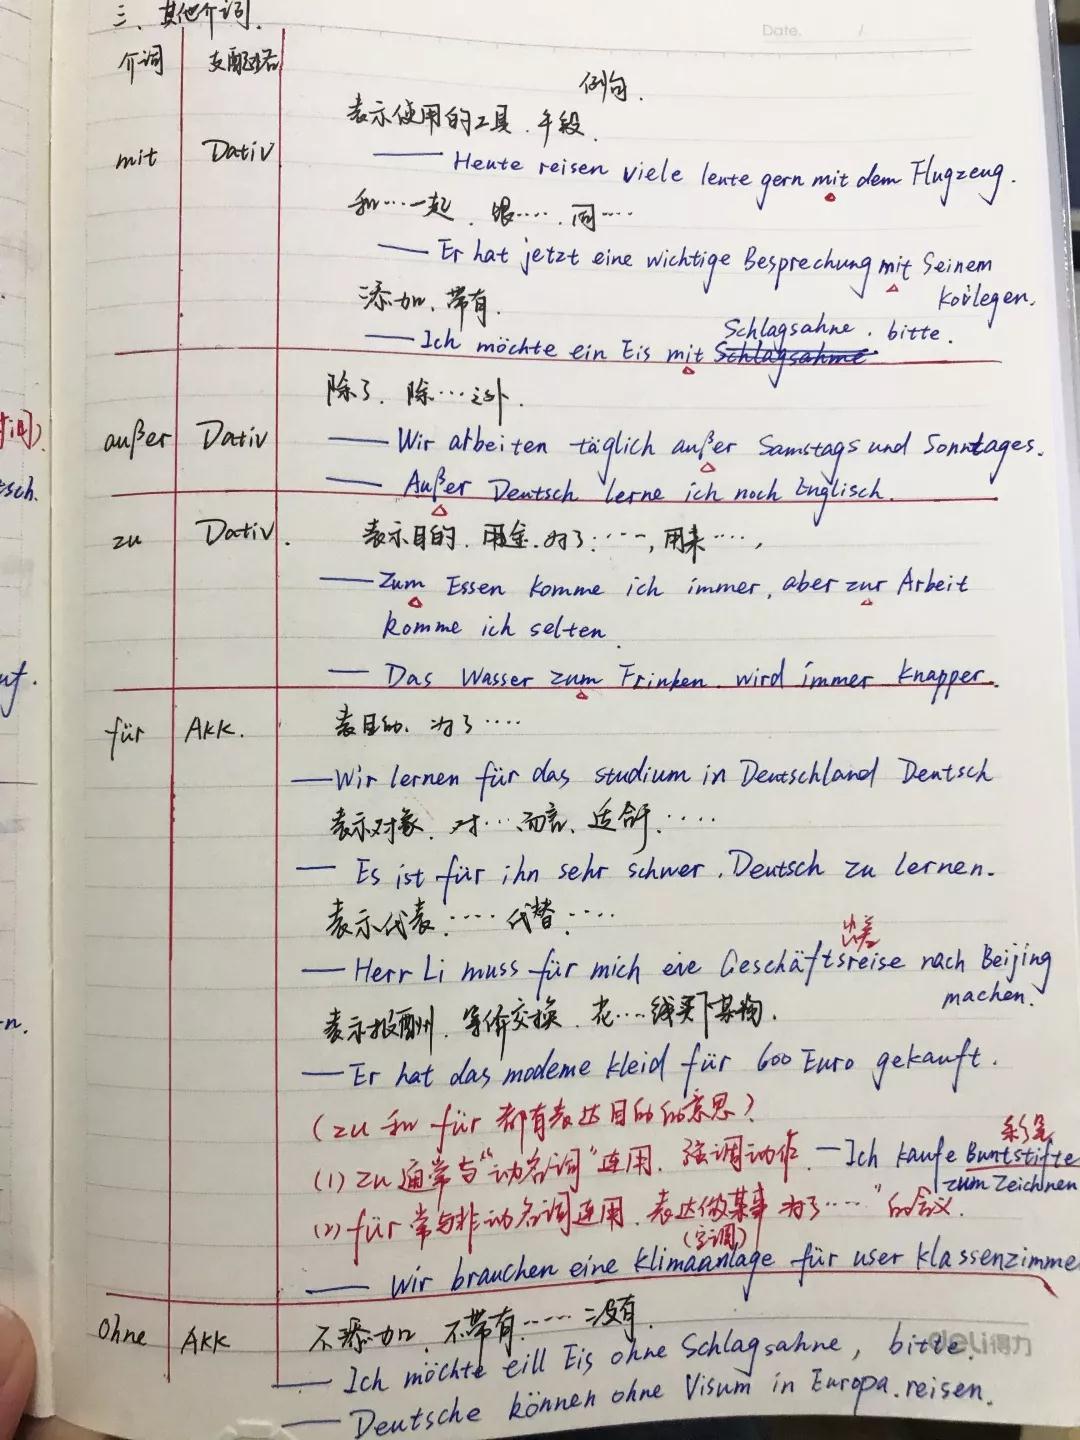 三、其他介词.
Date. /
介词 支配格 例句.
表示使用的工具.手段.
mit Dativ
—— Heute reisen viele leute gern mit dem Flugzeug.
和……一起、跟……同……
—— Er hat jetzt eine wichtige Besprechung mit Seinem
Kollegen.
添加、带有.
—— Ich möchte ein Eis mit Schlagsahne. bitte.
除了、除……之外.
außer Dativ —— Wir arbeiten täglich außer Samstags und Sonntages.
—— Außer Deutsch lerne ich noch Englisch.
zu Dativ. 表示目的.用途.为了……,用来……,
—— Zum Essen komme ich immer, aber zur Arbeit
komme ich selten.
—— Das Wasser zum Trinken wird immer knapper.
für Akk. 表目的、为了……
—— Wir lernen für das studium in Deutschland Deutsch
表示对象、对…而言、适合于……
—— Es ist für ihn sehr schwer, Deutsch zu lernen.
表示代表……代替……
出差
—— Herr Li muss für mich eie Geschäftsreise nach Beijing
machen.
表示报酬、等价交换、花……钱买下某物.
—— Er hat das modeme kleid für 600 Euro gekauft.
(zu 和 für 都有表达目的的意思)
彩笔
(1) zu 通常与"动名词"连用、强调动作. — Ich kaufe Buntstifte
zum Zeichnen
(2) für 常与非动名词连用、表达做某事"为了……"的含义.
(空调)
—— Wir brauchen eine Klimaanlage für user klassenzimme
Ohne AKK 不添加、不带有……没有.
—— Ich möchte eill Eis ohne Schlagsahne, bitte.
deli得力
—— Deutsche können ohne Visum in Europa reisen.